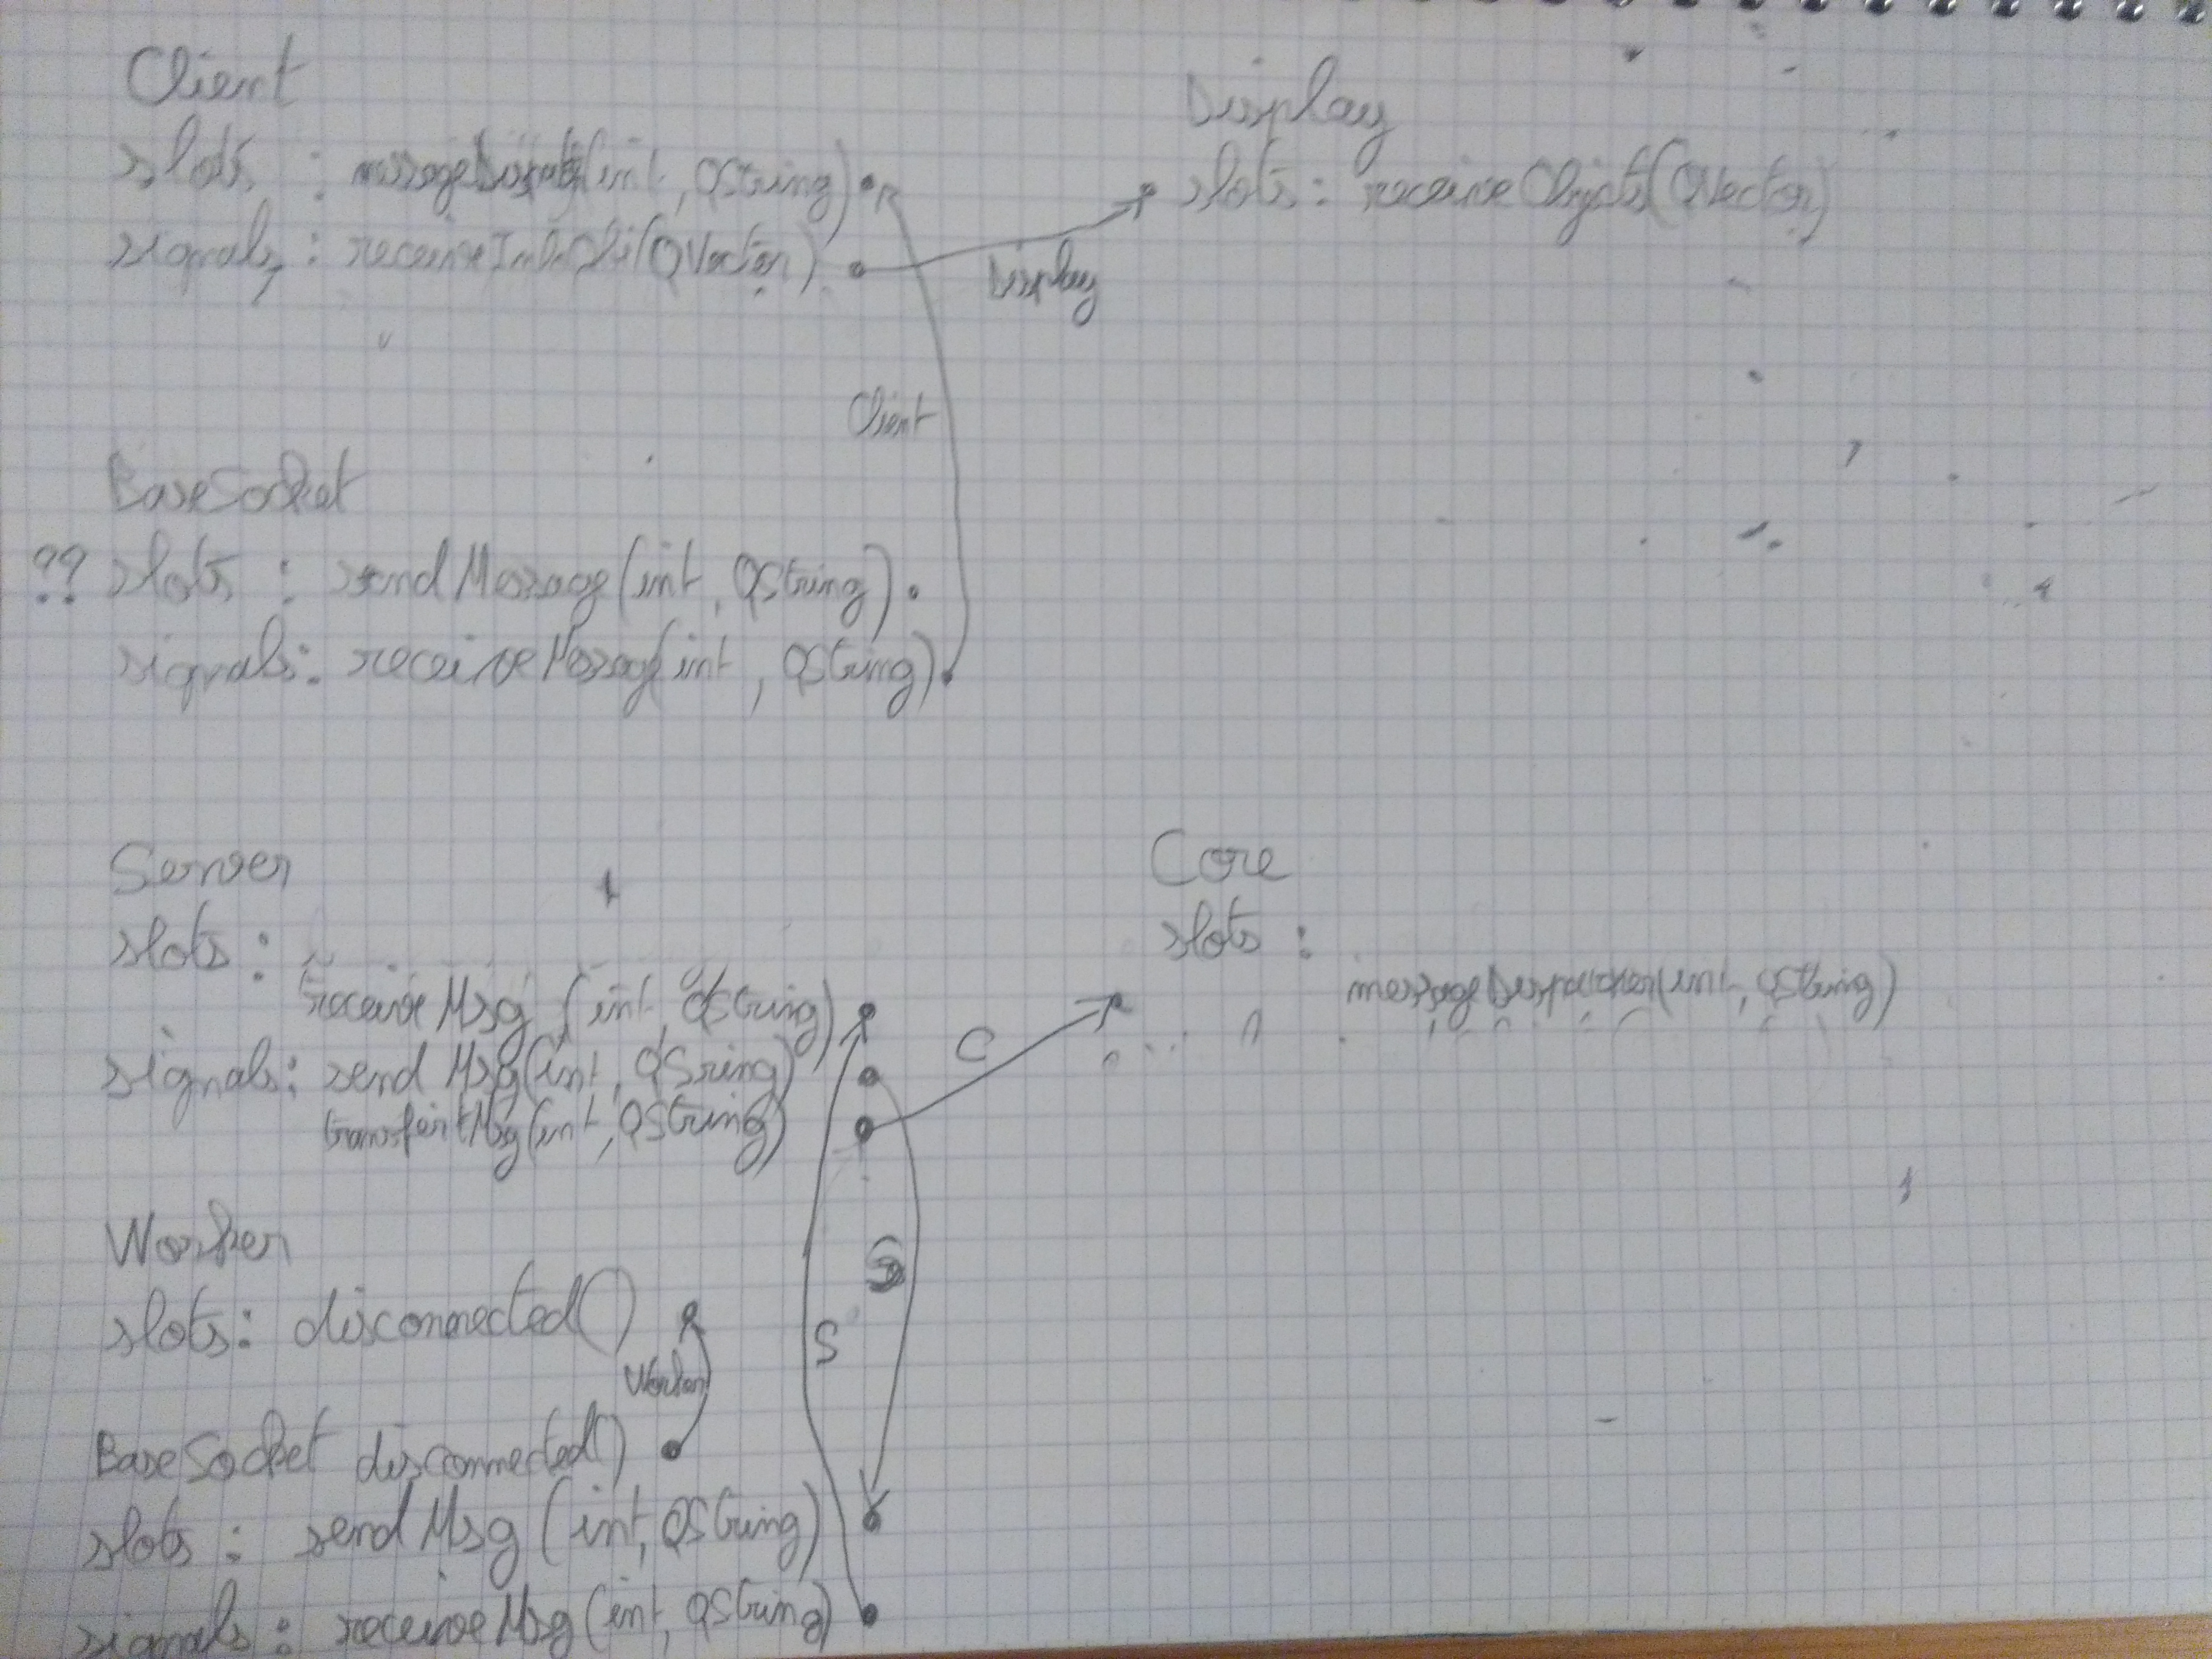 Client
slots : (int, QString)
signals : (QVector)
Display
slots : receiveObjects(QVector)
Display
Client
BaseSocket
?? slots : sendMessage(int, QString)
signals : receiveMessage(int, QString)
Server
slots :
receiveMsg (int, QString)
signals : sendMsg(int, QSring)
transfertMsg(int, QString)
Core
slots :
messageDispatcher(int, QString)
C
S
S
Worker
slots : disconnected()
Worker
BaseSocket disconnected()
slots : sendMsg (int, QString)
signals : receiveMsg(int, QString)